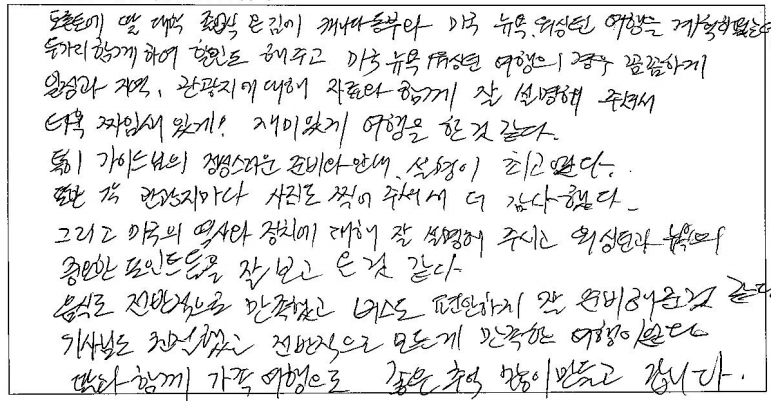 토론토에 딸 대학 졸업식 온김에 캐나다 동부와 미국 뉴욕, 워싱턴 여행을 계획하였는데
두가지 함께 하여 할인도 해주고 미국 뉴욕 워싱턴 여행의 경우 꼼꼼하게
일정과 지역, 관광지에 대해 자료와 함께 잘 설명해 주셔서
더욱 짜임새 있게! 재미있게 여행을 한것 같다.
특히 가이드님의 정성스러운 준비와 안내, 설명이 최고였다.
또한 각 관광지마다 사진도 찍어 주셔서 더 감사했다.
그리고 미국의 역사와 정치에 대해 잘 설명해 주시고 워싱턴과 뉴욕의
중요한 포인트들을 잘 보고 온것 같다.
음식도 전반적으로 만족했고 버스도 편안하게 잘 준비해준것 같다.
기사님도 친절했고 전반적으로 모든게 만족한 여행이었다
딸과 함께 가족여행으로 좋은 추억 많이 만들고 갑니다.